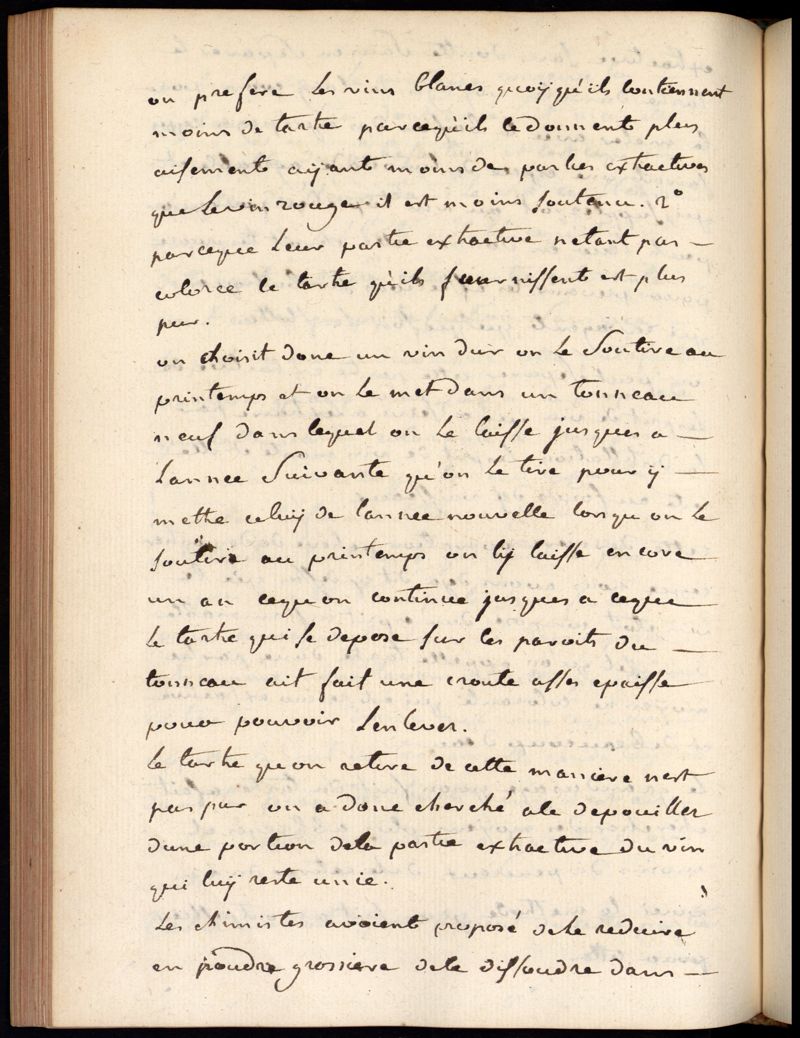 on prefere les vins blancs quoyqu'ils contiennent
moins de tartre parcequ'ils le donnent plus
aisement ayant moins de parties extractives
que le vin rouge il est moins soutenu. 2°
parceque leur partie extractive netant pas —
coloree le tartre qu'ils fournissent est plus
pur.
on choisit donc un vin dur on le soutire au
printemps et on le met dans un tonneau
neuf dans lequel on le laisse jusques a —
lannee suivante qu'on le tire pour y —
mettre celuy de lannee nouvelle lorsqu on le
soutire au printemps on ly laisse encore
un an cequon continue jusques a ceque
le tartre qui se depose sur les paroits du —
tonneau ait fait une croute asses epaisse
pour pouvoir lenlever.
le tartre quon retire de cette maniere nest
pas pur on a donc cherché a le depouiller
dune portion dela partie extractive du vin
qui luy reste unie.
Les chimistes avoient proposé de le reduire
en poudre grossiere de le dissoudre dans —